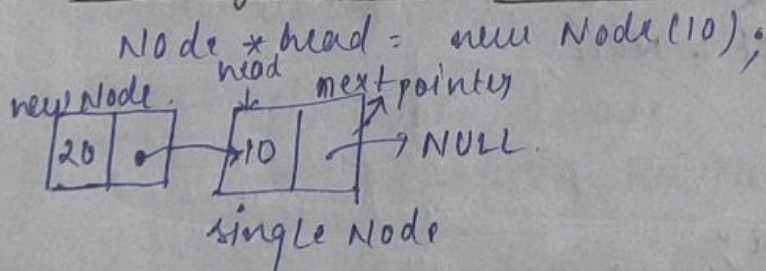 Node *head = new Node(10);
head
new Node. next pointer
20 10 NULL.
single Node